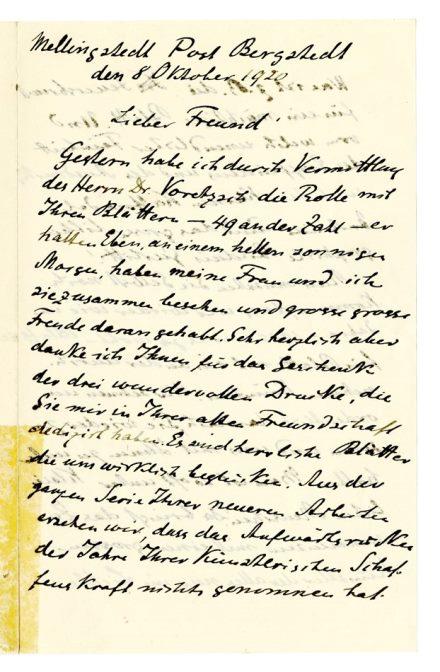 Mellingstedt Post Bergstedt
den 8 Oktober 1920
Lieber Freund!
Gestern habe ich durch Vermittlung
des Herrn Dr. Voretzsch die Rolle mit
Ihren Blättern – 49 an der Zahl – er
halten Eben, an einem hellen sonnigen
Morgen, haben meine Frau und ich
sie zusammen besehen und grosse grosse
Freude daran gehabt. Sehr herzlich aber
danke ich Ihnen für das Geschenk
der drei wundervollen Drucke, die
Sie mir in Ihrer alten Freundschaft
dediziert haben. Es sind herrliche Blätter
die uns wirklich beglücken. Aus der
ganzen Serie Ihrer neueren Arbeiten
ersehen wir, dass das Aufwärtsrücken
der Jahre Ihrer Künstlerischen Schaf-
fens Kraft nichts genommen hat.